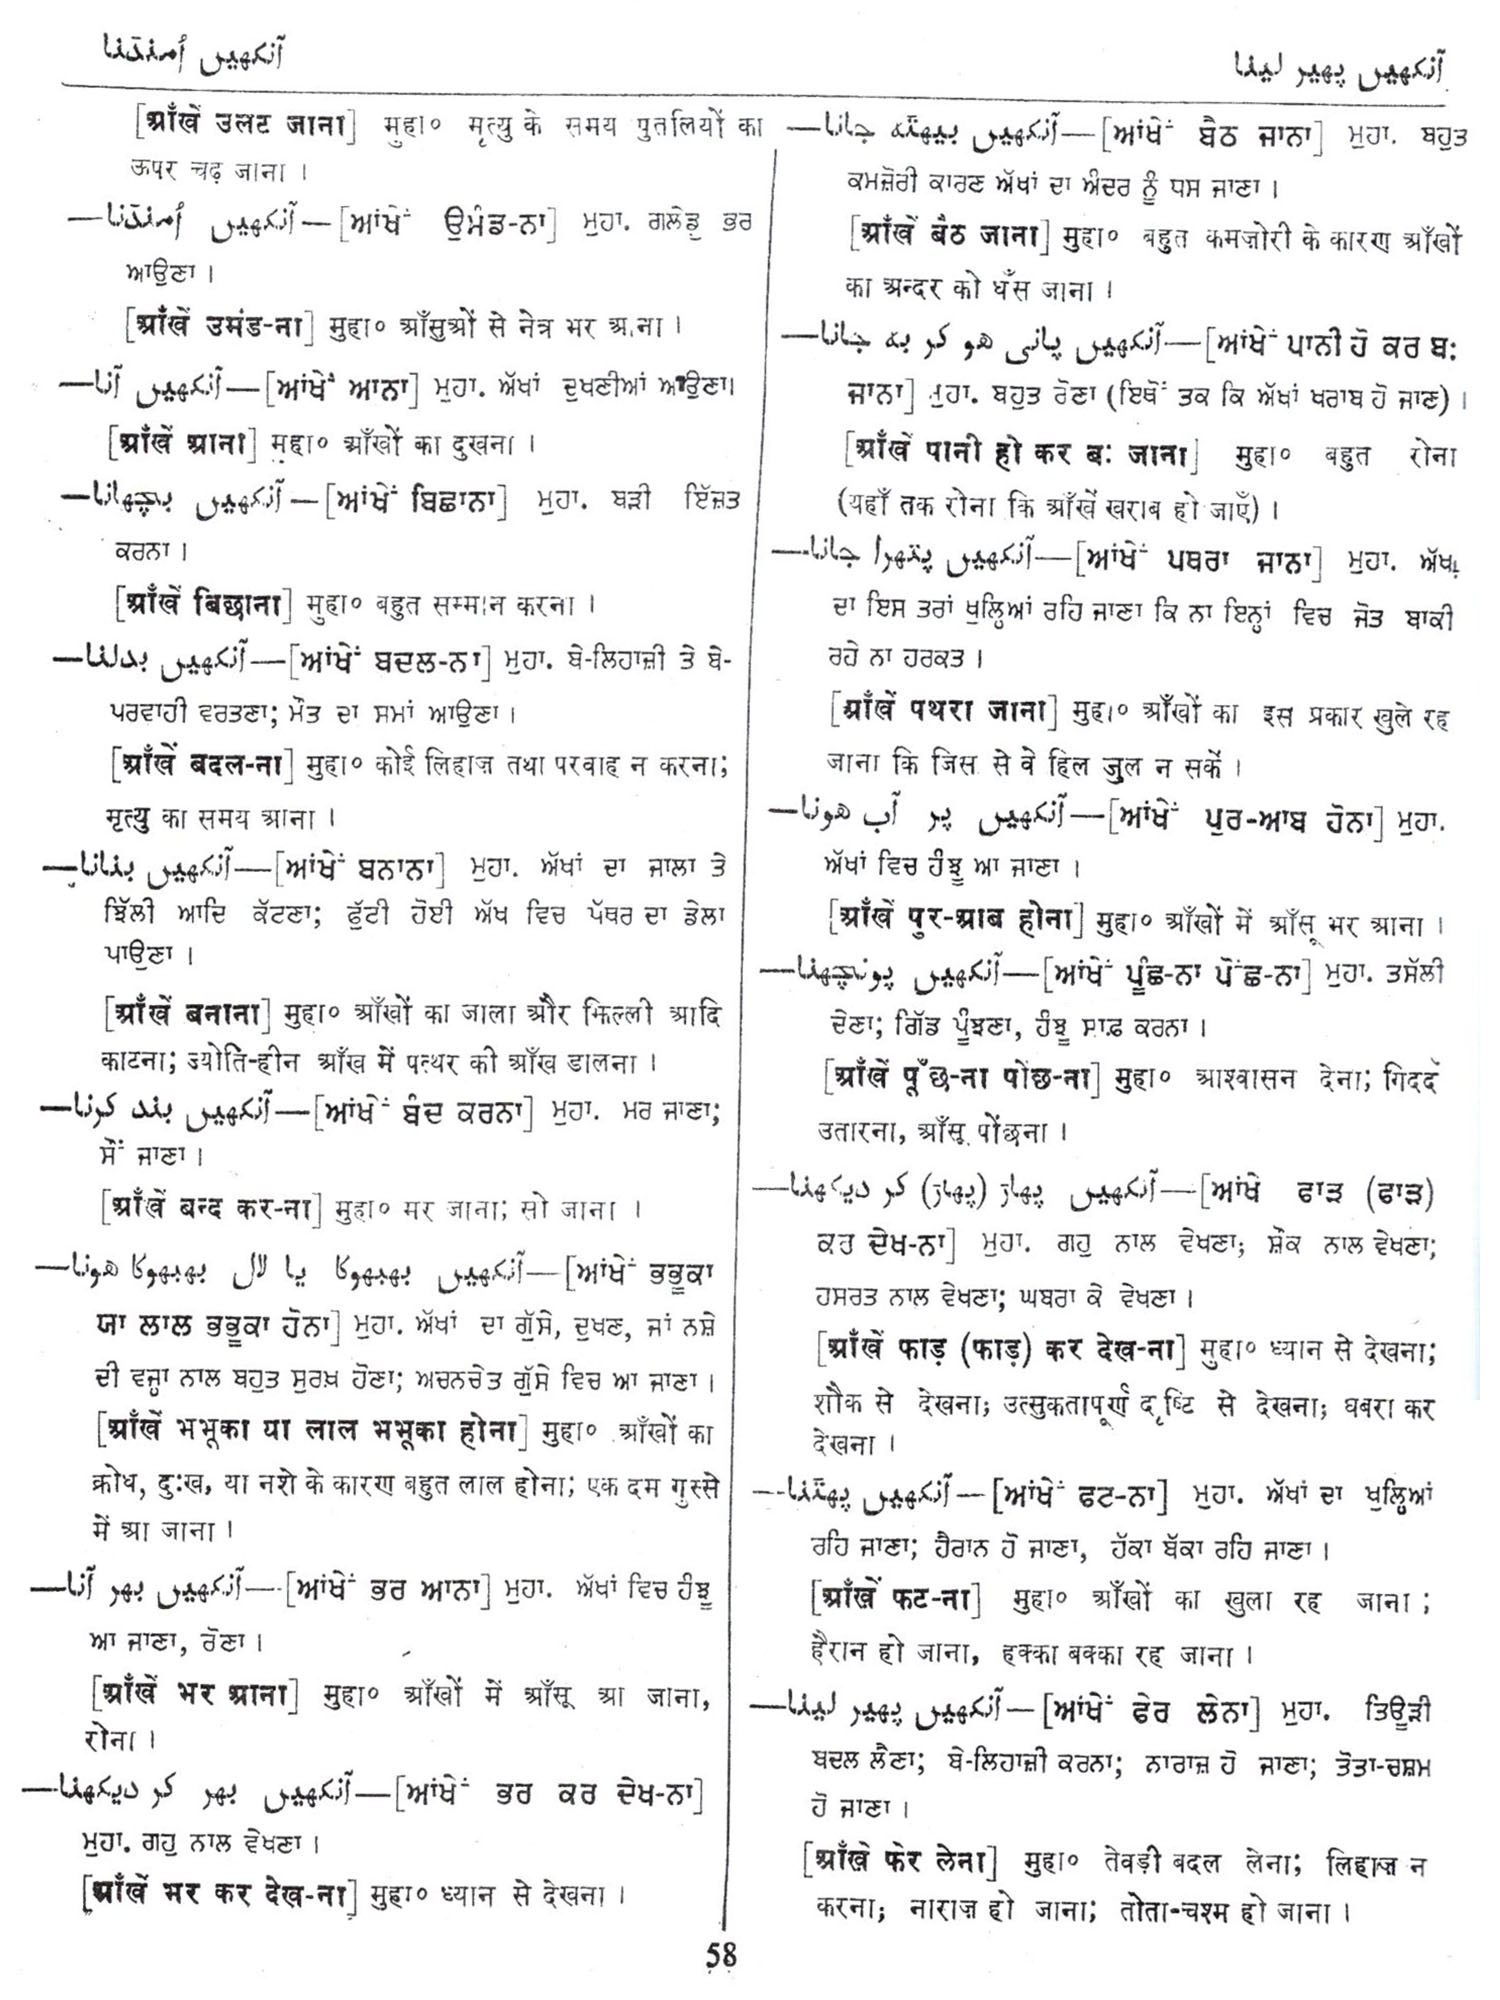 آنکھیں اُمنڈنا
آنکھیں پھیر لینا
[आँखें उलट जाना] मुहा० मृत्यु के समय पुतलियों का
ऊपर चढ़ जाना ।
آنکھیں اُمنڈنا—[ਆਂਖੇਂ ਉਮੰਡ-ਨਾ] ਮੁਹਾ. ਗਲੇਡੂ ਭਰ
ਆਉਣਾ ।
[आँखें उमंड-ना] मुहा० आँसुओं से नेत्र भर आना ।
آنکھیں آنا—[ਆਂਖੇਂ ਆਨਾ] ਮੁਹਾ. ਅੱਖਾਂ ਦੁਖਣੀਆਂ ਆਉਣਾ।
[आँखें आना] मुहा० आँखों का दुखना ।
آنکھیں بچھانا—[ਆਂਖੇਂ ਬਿਛਾਨਾ] ਮੁਹਾ. ਬੜੀ ਇੱਜ਼ਤ
ਕਰਨਾ ।
[आँखें बिछाना] मुहा० बहुत सम्मान करना ।
آنکھیں بدلنا—[ਆਂਖੇਂ ਬਦਲ-ਨਾ] ਮੁਹਾ. ਬੇ-ਲਿਹਾਜ਼ੀ ਤੇ ਬੇ-
ਪਰਵਾਹੀ ਵਰਤਣਾ; ਮੌਤ ਦਾ ਸਮਾਂ ਆਉਣਾ ।
[आँखें बदल-ना] मुहा० कोई लिहाज़ तथा परवाह न करना;
मृत्यु का समय आना ।
آنکھیں بنانا—[ਆਂਖੇਂ ਬਨਾਨਾ] ਮੁਹਾ. ਅੱਖਾਂ ਦਾ ਜਾਲਾ ਤੇ
ਝਿੱਲੀ ਆਦਿ ਕੱਟਣਾ; ਫੁੱਟੀ ਹੋਈ ਅੱਖ ਵਿਚ ਪੱਥਰ ਦਾ ਡੇਲਾ
ਪਾਉਣਾ ।
[आँखें बनाना] मुहा० आँखों का जाला और झिल्ली आदि
काटना; ज्योति-हीन आँख में पत्थर की आँख डालना ।
آنکھیں بند کرنا—[ਆਂਖੇਂ ਬੰਦ ਕਰਨਾ] ਮੁਹਾ. ਮਰ ਜਾਣਾ;
ਸੌਂ ਜਾਣਾ ।
[आँखें बन्द कर-ना] मुहा० मर जाना; सो जाना ।
آنکھیں بھبھوکا یا لال بھبھوکا ھونا—[ਆਂਖੇਂ ਭਭੂਕਾ
ਯਾ ਲਾਲ ਭਭੂਕਾ ਹੋਨਾ] ਮੁਹਾ. ਅੱਖਾਂ ਦਾ ਗੁੱਸੇ, ਦੁਖਣ, ਜਾਂ ਨਸ਼ੇ
ਦੀ ਵਜ੍ਹਾ ਨਾਲ ਬਹੁਤ ਸੁਰਖ਼ ਹੋਣਾ; ਅਚਨਚੇਤ ਗੁੱਸੇ ਵਿਚ ਆ ਜਾਣਾ ।
[आँखें भभूका या लाल भभूका होना] मुहा० आँखों का
क्रोध, दुःख, या नशे के कारण बहुत लाल होना; एक दम गुस्से
में आ जाना ।
آنکھیں بھر آنا—[ਆਂਖੇਂ ਭਰ ਆਨਾ] ਮੁਹਾ. ਅੱਖਾਂ ਵਿਚ ਹੰਝੂ
ਆ ਜਾਣਾ, ਰੋਣਾ ।
[आँखें भर आना] मुहा० आँखों में आँसू आ जाना,
रोना ।
آنکھیں بھر کر دیکھنا—[ਆਂਖੇਂ ਭਰ ਕਰ ਦੇਖ-ਨਾ]
ਮੁਹਾ. ਗਹੁ ਨਾਲ ਵੇਖਣਾ ।
[आँखें भर कर देख-ना] मुहा० ध्यान से देखना ।
آنکھیں بیٹھ جانا—[ਆਂਖੇਂ ਬੈਠ ਜਾਨਾ] ਮੁਹਾ. ਬਹੁਤ
ਕਮਜ਼ੋਰੀ ਕਾਰਣ ਅੱਖਾਂ ਦਾ ਅੰਦਰ ਨੂੰ ਧਸ ਜਾਣਾ ।
[आँखें बैठ जाना] मुहा० बहुत कमज़ोरी के कारण आँखों
का अन्दर को धँस जाना ।
آنکھیں پانی ھو کر بہ جانا—[ਆਂਖੇਂ ਪਾਨੀ ਹੋ ਕਰ ਬ:
ਜਾਨਾ] ਮੁਹਾ. ਬਹੁਤ ਰੋਣਾ (ਇਥੋਂ ਤਕ ਕਿ ਅੱਖਾਂ ਖਰਾਬ ਹੋ ਜਾਣ) ।
[आँखें पानी हो कर बः जाना] मुहा० बहुत रोना
(यहाँ तक रोना कि आँखें खराब हो जाएँ) ।
آنکھیں پتھرا جانا—[ਆਂਖੇਂ ਪਥਰਾ ਜਾਨਾ] ਮੁਹਾ. ਅੱਖਾਂ
ਦਾ ਇਸ ਤਰਾਂ ਖੁਲ੍ਹਿਆਂ ਰਹਿ ਜਾਣਾ ਕਿ ਨਾ ਇਨ੍ਹਾਂ ਵਿਚ ਜੋਤ ਬਾਕੀ
ਰਹੇ ਨਾ ਹਰਕਤ ।
[आँखें पथरा जाना] मुहा० आँखों का इस प्रकार खुले रह
जाना कि जिस से वे हिल जुल न सकें ।
آنکھیں پر آب ھونا—[ਆਂਖੇਂ ਪੁਰ-ਆਬ ਹੋਨਾ] ਮੁਹਾ.
ਅੱਖਾਂ ਵਿਚ ਹੰਝੂ ਆ ਜਾਣਾ ।
[आँखें पुर-आब होना] मुहा० आँखों में आँसू भर आना ।
آنکھیں پونچھنا—[ਆਂਖੇਂ ਪੂੰਛ-ਨਾ ਪੋਂਛ-ਨਾ] ਮੁਹਾ. ਤਸੱਲੀ
ਦੇਣਾ; ਗਿੱਡ ਪੂੰਝਣਾ, ਹੰਝੂ ਸਾਫ਼ ਕਰਨਾ ।
[आँखें पूँछ-ना पोंछ-ना] मुहा० आश्वासन देना; गिदद
उतारना, आँसू पोंछना ।
آنکھیں پھاڑ (پھاڑ) کر دیکھنا—[ਆਂਖੇਂ ਫਾੜ (ਫਾੜ)
ਕਰ ਦੇਖ-ਨਾ] ਮੁਹਾ. ਗਹੁ ਨਾਲ ਵੇਖਣਾ; ਸ਼ੌਕ ਨਾਲ ਵੇਖਣਾ;
ਹਸਰਤ ਨਾਲ ਵੇਖਣਾ; ਘਬਰਾ ਕੇ ਵੇਖਣਾ ।
[आँखें फाड़ (फाड़) कर देख-ना] मुहा० ध्यान से देखना;
शौक से देखना; उत्सुकतापूर्ण दृष्टि से देखना; घबरा कर
देखना ।
آنکھیں پھٹنا—[ਆਂਖੇਂ ਫਟ-ਨਾ] ਮੁਹਾ. ਅੱਖਾਂ ਦਾ ਖੁਲ੍ਹਿਆਂ
ਰਹਿ ਜਾਣਾ; ਹੈਰਾਨ ਹੋ ਜਾਣਾ, ਹੱਕਾ ਬੱਕਾ ਰਹਿ ਜਾਣਾ ।
[आँखें फट-ना] मुहा० आँखों का खुला रह जाना ;
हैरान हो जाना, हक्का बक्का रह जाना ।
آنکھیں پھیر لینا—[ਆਂਖੇਂ ਫੇਰ ਲੇਨਾ] ਮੁਹਾ. ਤਿਊੜੀ
ਬਦਲ ਲੈਣਾ; ਬੇ-ਲਿਹਾਜ਼ੀ ਕਰਨਾ; ਨਾਰਾਜ਼ ਹੋ ਜਾਣਾ; ਤੋਤਾ-ਚਸ਼ਮ
ਹੋ ਜਾਣਾ ।
[आँखें फेर लेना] मुहा० तेवड़ी बदल लेना; लिहाज़ न
करना; नाराज़ हो जाना; तोता-चश्म हो जाना ।
58